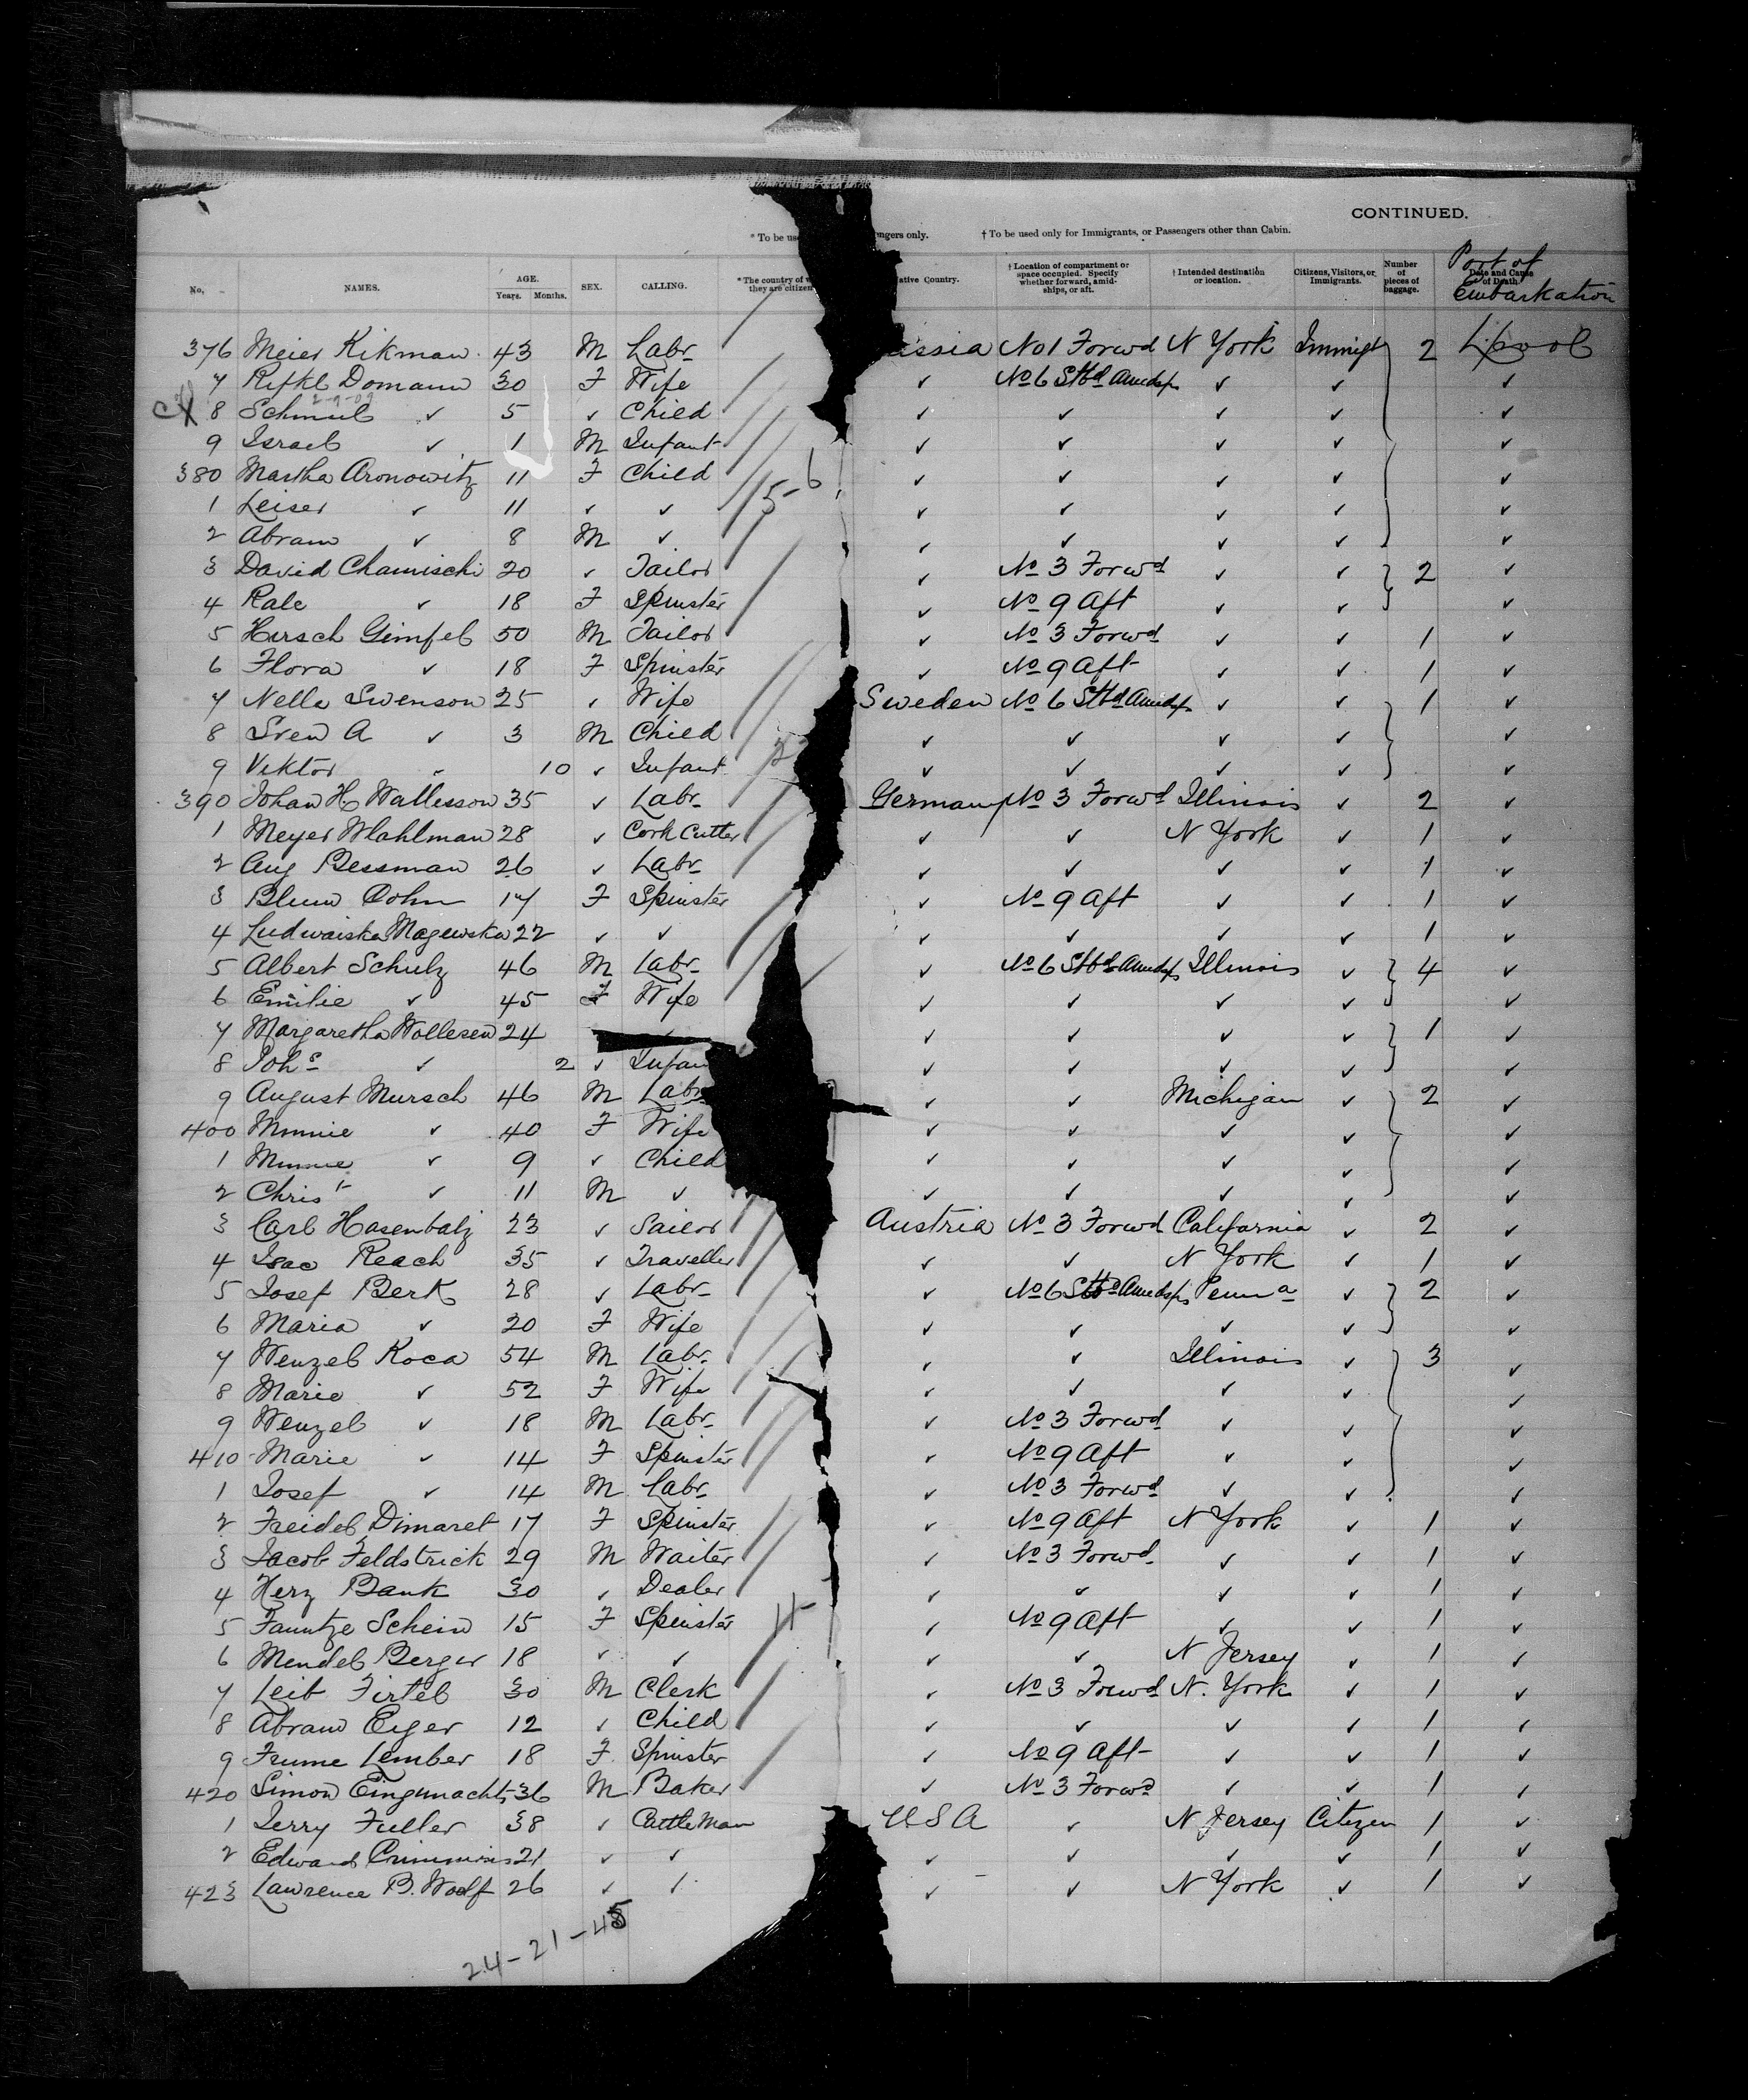 CONTINUED.
* To be use ngers only. † To be used only for Immigrants, or Passengers other than Cabin.
No. NAMES. AGE. Years. Months. SEX. CALLING. * The country of w they are citizen ative Country. † Location of compartment or space occupied. Specify whether forward, amidships, or aft. † Intended destination or location. Citizens, Visitors, or Immigrants. Number of pieces of baggage. Date and Cause of Death Port of Embarkation
376 Meier Kikman 43 M Labr ussia No 1 Forwd N York Immigt 2 L'pool
7 Rifkl Domann 30 F Wife ✓ No 6 Stbd Amidsps ✓ ✓ ✓
8 Schmul ✓ 5 ✓ Child ✓ ✓ ✓ ✓ ✓
9 Israel ✓ 1 M Infant ✓ ✓ ✓ ✓ ✓
380 Martha Aronowitz 11 F Child ✓ ✓ ✓ ✓ ✓
1 Leiser ✓ 11 ✓ ✓ ✓ ✓ ✓ ✓ ✓
2 Abram ✓ 8 M ✓ ✓ ✓ ✓ ✓ ✓
3 David Chamischi 20 ✓ Tailor ✓ No 3 Forwd ✓ ✓ 2 ✓
4 Rale ✓ 18 F Spinster ✓ No 9 Aft ✓ ✓ ✓
5 Hirsch Gimfel 50 M Tailor ✓ No 3 Forwd ✓ ✓ 1 ✓
6 Flora ✓ 18 F Spinster ✓ No 9 Aft ✓ ✓ 1 ✓
7 Nelle Swenson 25 ✓ Wife Sweden No 6 Stbd Amidsps ✓ ✓ 1 ✓
8 Sven A ✓ 3 M Child ✓ ✓ ✓ ✓ ✓
9 Viktor ✓ 10 ✓ Infant ✓ ✓ ✓ ✓ ✓
390 Johan H. Wallesson 35 ✓ Labr Germany No 3 Forwd Illinois ✓ 2 ✓
1 Meyer Wahlman 28 ✓ Cork Cutter ✓ ✓ N York ✓ 1 ✓
2 Aug Bessman 26 ✓ Labr ✓ ✓ ✓ ✓ 1 ✓
3 Blum Cohn 17 F Spinster ✓ No 9 Aft ✓ ✓ 1 ✓
4 Ludwaiska Magewska 22 ✓ ✓ ✓ ✓ ✓ ✓ 1 ✓
5 Albert Schulz 46 M Labr ✓ No 6 Stbd Amidsps Illinois ✓ 4 ✓
6 Emilie ✓ 45 F Wife ✓ ✓ ✓ ✓ ✓
7 Margaretha Wollesen 24 ✓ ✓ ✓ ✓ 1 ✓
8 Johs ✓ 2 ✓ Infan ✓ ✓ ✓ ✓ ✓
9 August Mursch 46 M Labr ✓ ✓ Michigan ✓ 2 ✓
400 Minnie ✓ 40 F Wife ✓ ✓ ✓ ✓ ✓
1 Minnie ✓ 9 ✓ Child ✓ ✓ ✓ ✓ ✓
2 Christ ✓ 11 M ✓ ✓ ✓ ✓ ✓ ✓
3 Carl Hasenbalz 23 ✓ Sailor Austria No 3 Forwd California ✓ 2 ✓
4 Isac Reach 35 ✓ Traveller ✓ ✓ N York ✓ 1 ✓
5 Josef Berk 28 ✓ Labr ✓ No 6 Stbd Amidsps Penna ✓ 2 ✓
6 Maria ✓ 20 F Wife ✓ ✓ ✓ ✓ ✓
7 Wenzel Koca 54 M Labr ✓ ✓ Illinois ✓ 3 ✓
8 Marie ✓ 52 F Wife ✓ ✓ ✓ ✓ ✓
9 Wenzel ✓ 18 M Labr ✓ No 3 Forwd ✓ ✓ ✓
410 Marie ✓ 14 F Spinster ✓ No 9 Aft ✓ ✓ ✓
1 Josef ✓ 14 M Labr ✓ No 3 Forwd ✓ ✓ ✓
2 Freidel Dimaret 17 F Spinster ✓ No 9 Aft N York ✓ 1 ✓
3 Jacob Feldstrick 29 M Waiter ✓ No 3 Forwd ✓ ✓ 1 ✓
4 Herz Bank 30 ✓ Dealer ✓ ✓ ✓ ✓ 1 ✓
5 Fauntze Schein 15 F Spinster ✓ No 9 Aft ✓ ✓ 1 ✓
6 Mendel Berger 18 ✓ ✓ ✓ ✓ N Jersey ✓ 1 ✓
7 Leib Firtel 30 M Clerk ✓ No 3 Forwd N. York ✓ 1 ✓
8 Abram Eger 12 ✓ Child ✓ ✓ ✓ ✓ 1 ✓
9 Frume Lember 18 F Spinster ✓ No 9 Aft ✓ ✓ 1 ✓
420 Simon Eingemacht 36 M Baker ✓ No 3 Forwd ✓ ✓ 1 ✓
1 Jerry Fuller 38 ✓ Cattle Man U S A ✓ N Jersey Citizen 1 ✓
2 Edward Crimmins 21 ✓ ✓ ✓ ✓ ✓ ✓ 1 ✓
423 Lawrence B. Woolf 26 ✓ ✓ ✓ ✓ N York ✓ 1 ✓
24-21-45